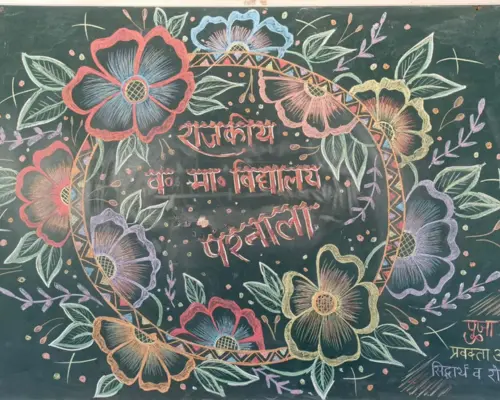 राजकीय
क॰ मा॰ विद्यालय
परनाला
पुजा
प्रवक्ता
सिद्धार्थ व